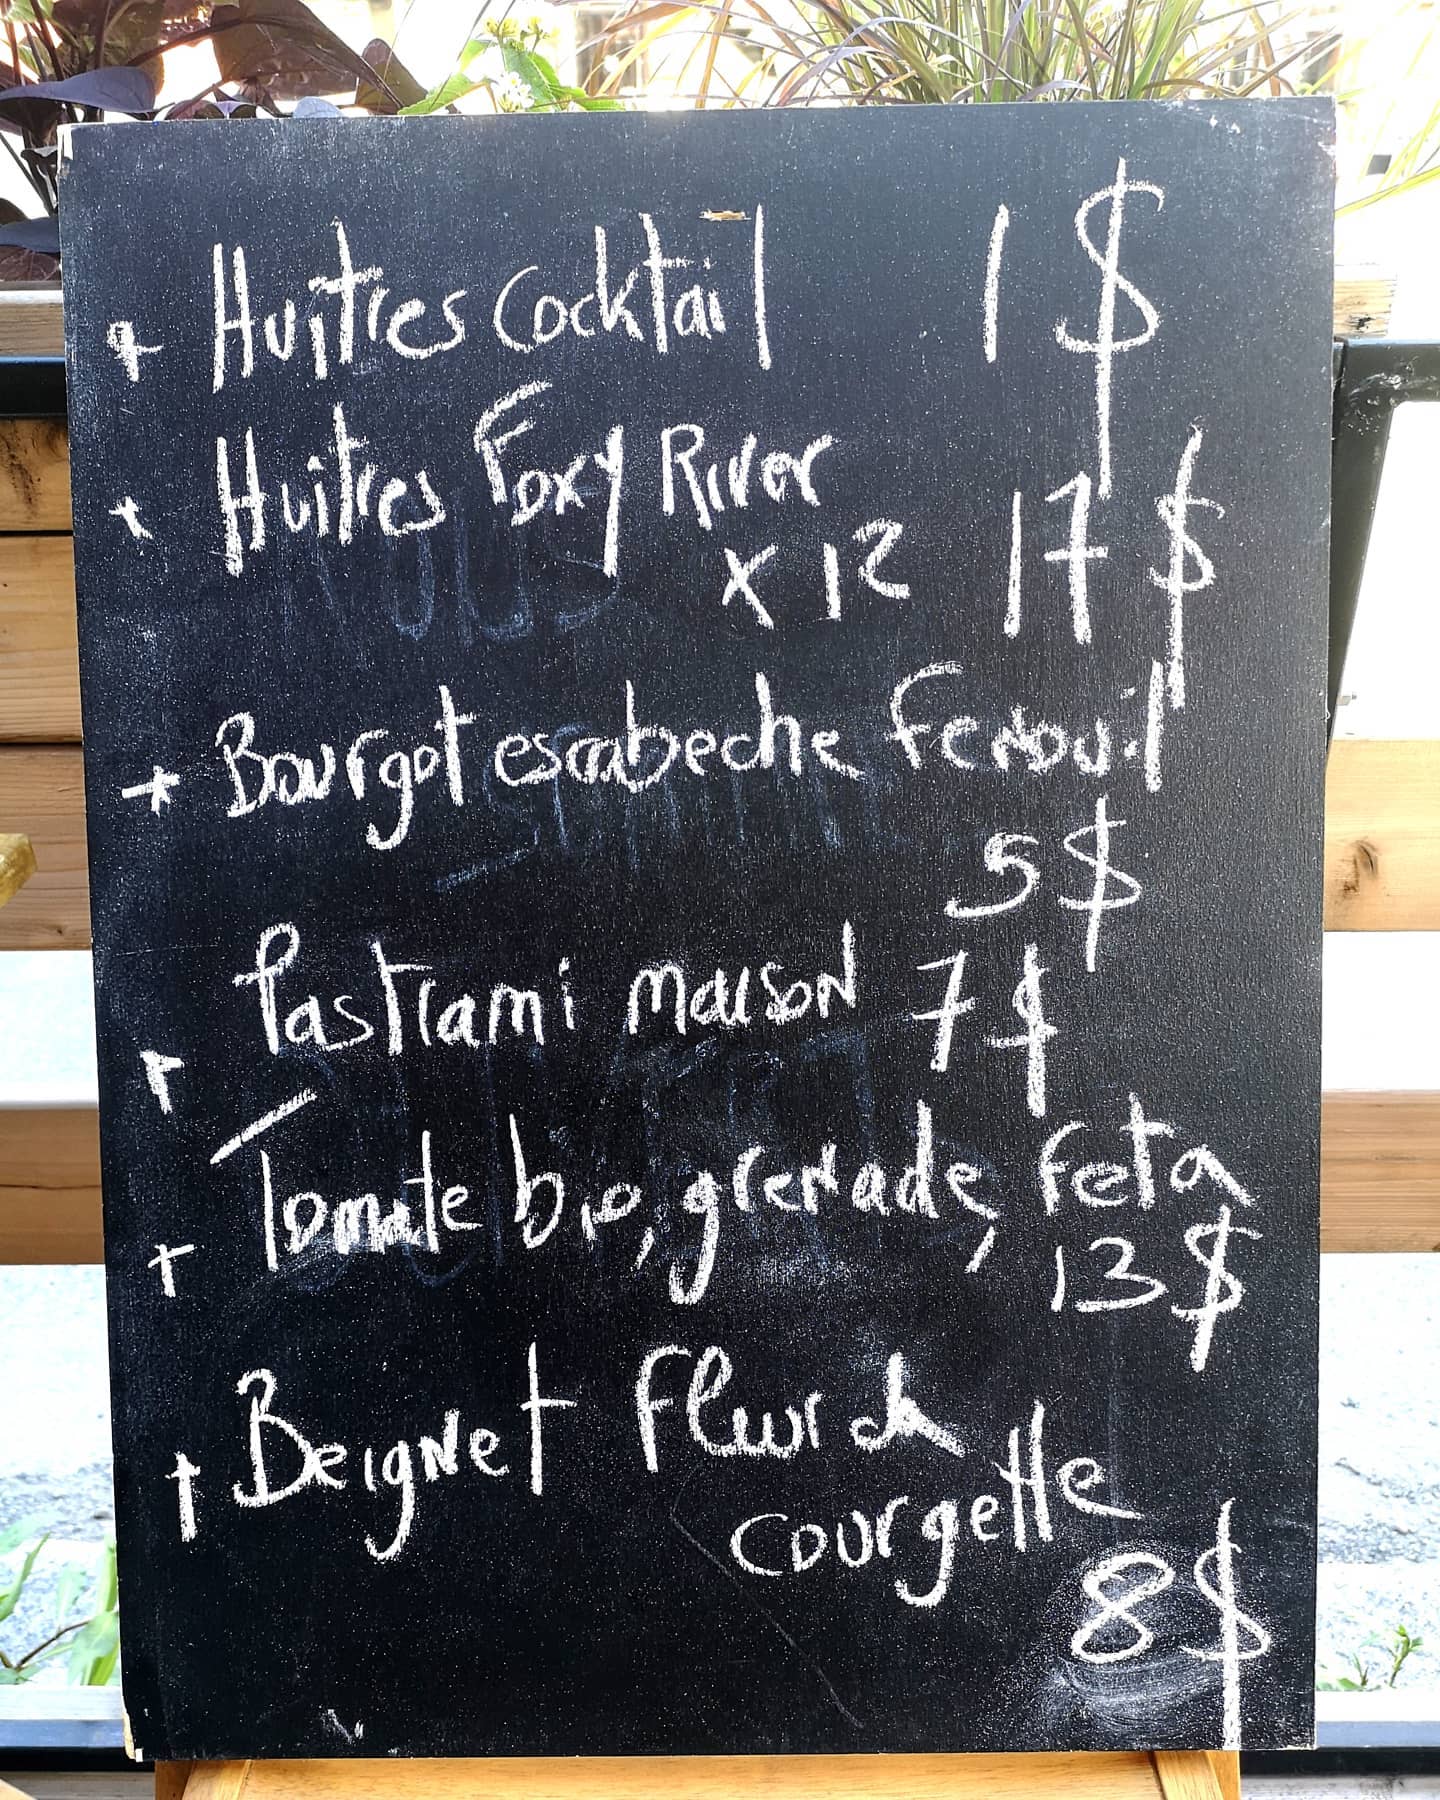 + Huitres Cocktail 1 $
+ Huitres Foxy River
x 12 17 $
+ Bourgot escabeche Fenouil
5 $
+ Pastrami maison 7 $
+ Tomate bio, grenade, Feta
13 $
+ Beignet Fleur de
courgette
8 $